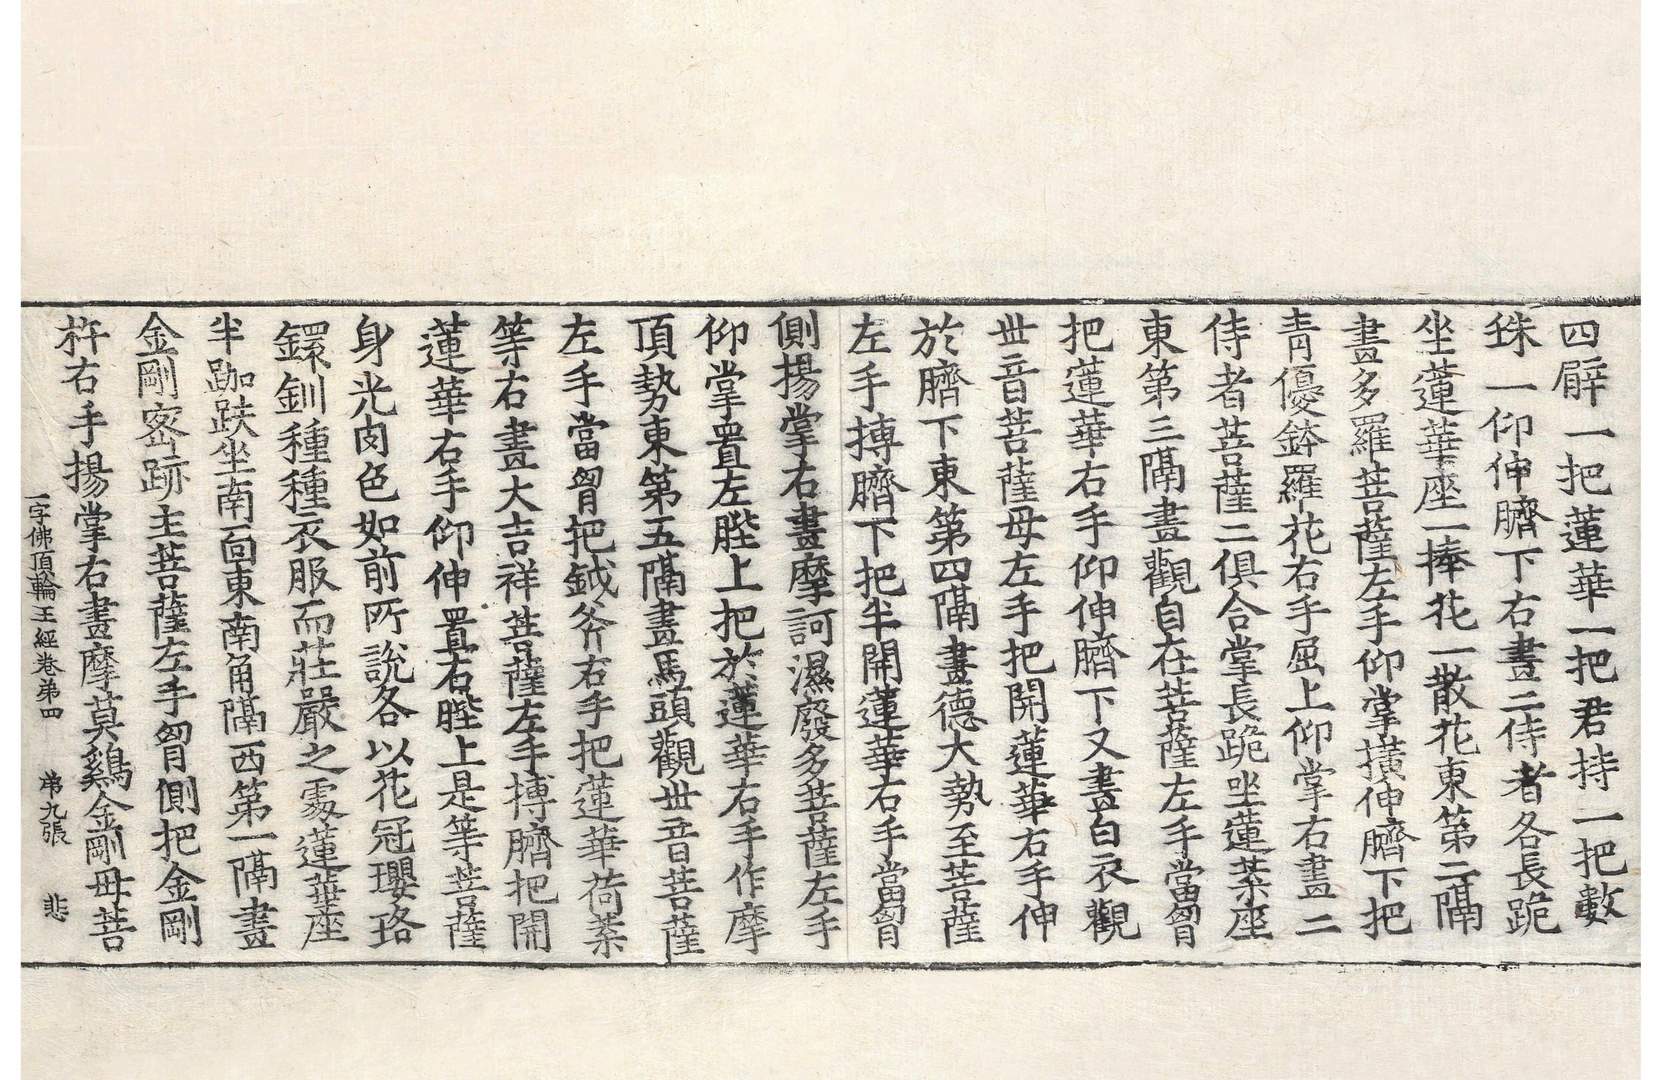 四臂一把蓮華一把君持一把數
珠一仰伸臍下右畫二侍者各長跪
坐蓮華座一捧花一散花東第二隔
畫多羅菩薩左手仰掌撗伸臍下把
青優鉢羅花右手屈上仰掌右畫二
侍者菩薩二俱合掌長跪坐蓮葉座
東第三隔畫觀自在菩薩左手當胷
把蓮華右手仰伸臍下又畫白衣觀
世音菩薩母左手把開蓮華右手伸
於臍下東第四隔畫德大勢至菩薩
左手搏臍下把半開蓮華右手當胷
側揚掌右畫摩訶濕廢多菩薩左手
仰掌置左䏶上把於蓮華右手作摩
頂勢東第五隔畫馬頭觀世音菩薩
左手當胷把鉞斧右手把蓮華荷葉
等右畫大吉祥菩薩左手搏臍把開
蓮華右手仰伸置右䏶上是等菩薩
身光肉色如前所說各以花冠瓔珞
鐶釧種種衣服而莊嚴之處蓮華座
半跏趺坐南面東南角隔西第一隔畫
金剛密跡主菩薩左手胷側把金剛
杵右手揚掌右畫摩莫雞金剛母菩
一字佛頂輪王經卷第四　第九張　悲